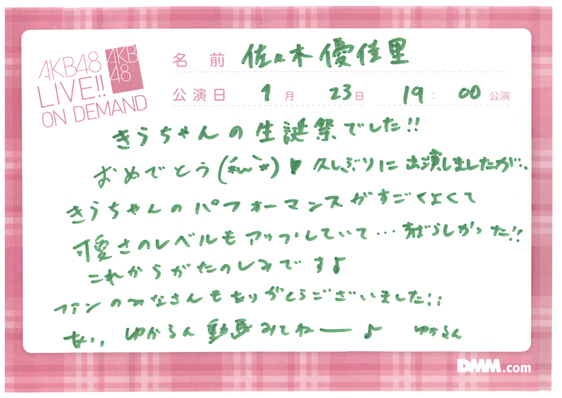 AKB48
LIVE!!
ON DEMAND
AKB
48
名前 佐々木優佳里
公演日 9月 23日 19:00公演
きうちゃんの生誕祭でした!!
おめでとう(*´ω`*)♥久しぶりに出演しましたが、
きうちゃんのパフォーマンスがすごくよくて
優さのレベルもアップしていて…すばらしかった!!
これからがたのしみです♪
ファンのみなさんもありがとうございました!!
あ、、ゆかるん動画みてねー♪ ゆかるん
DMM.com